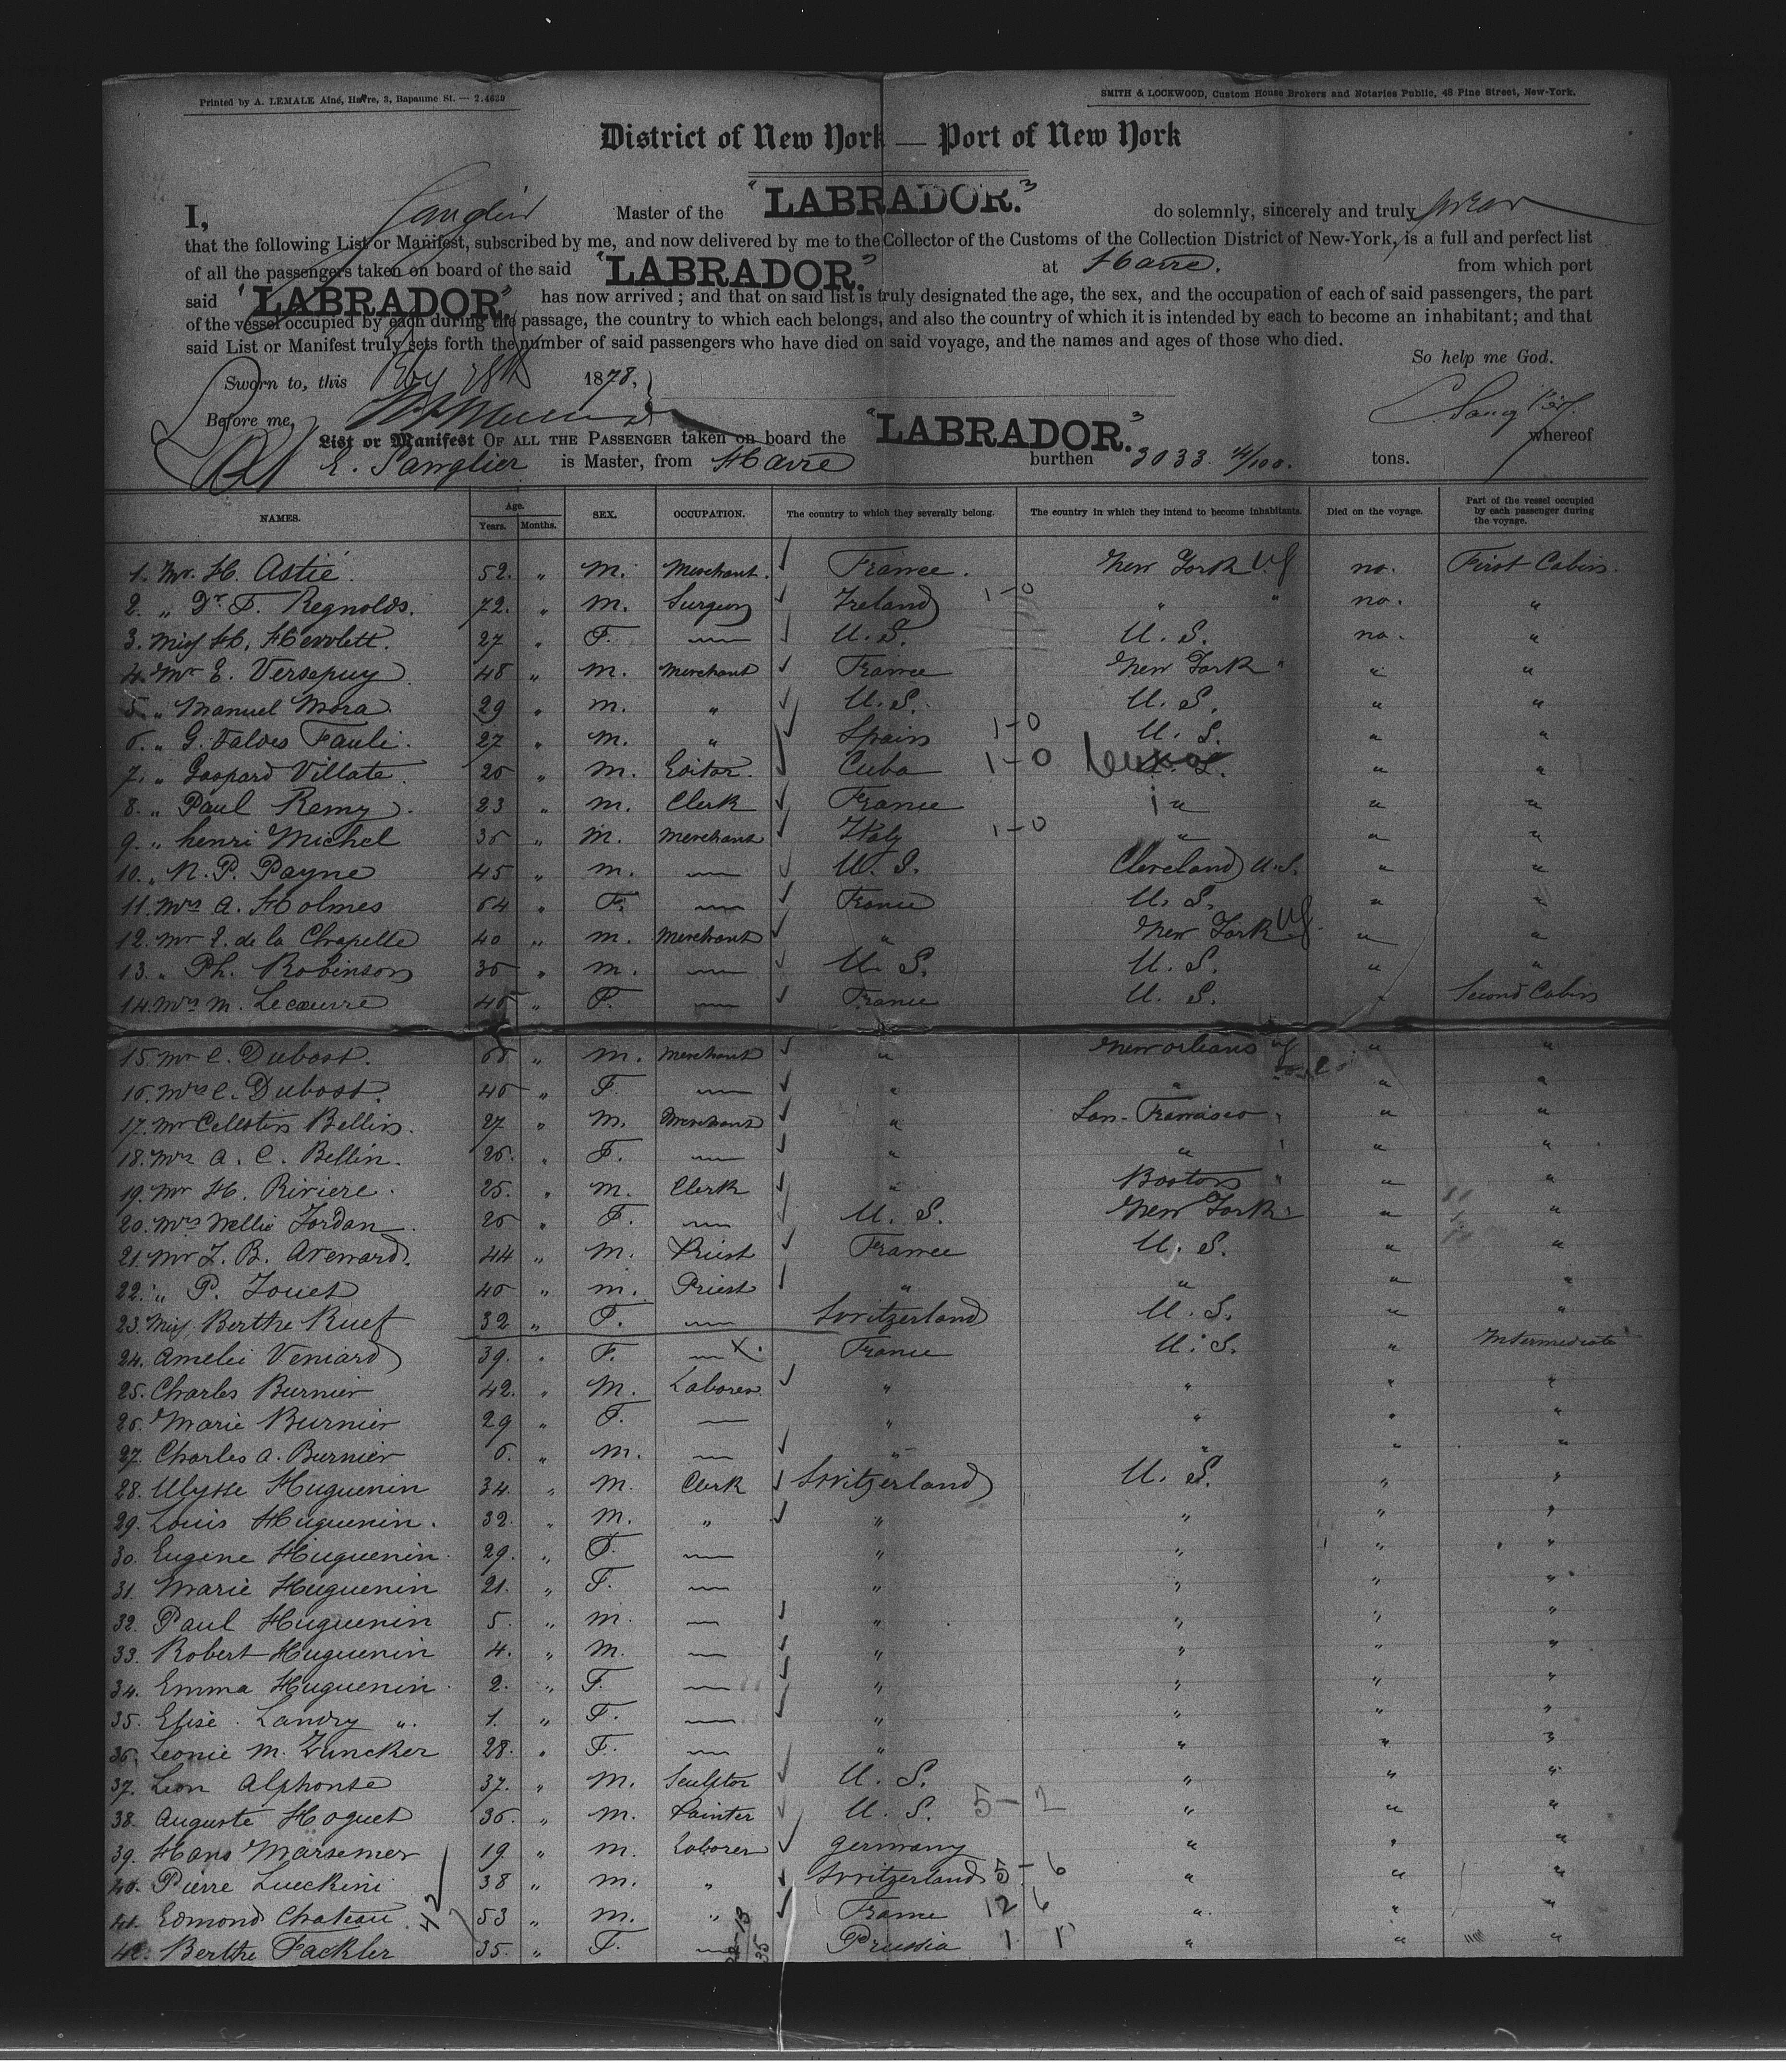 Printed by A. LEMALE Aîné, Havre, 3, Bapaume St. — 2.4629
SMITH & LOCKWOOD, Custom House Brokers and Notaries Public, 48 Pine Street, New-York.
District of New York — Port of New York
I, Sanglier Master of the "LABRADOR." do solemnly, sincerely and truly swear
that the following List or Manifest, subscribed by me, and now delivered by me to the Collector of the Customs of the Collection District of New-York, is a full and perfect list
of all the passengers taken on board of the said "LABRADOR." at Havre. from which port
said "LABRADOR." has now arrived; and that on said list is truly designated the age, the sex, and the occupation of each of said passengers, the part
of the vessel occupied by each during the passage, the country to which each belongs, and also the country of which it is intended by each to become an inhabitant; and that
said List or Manifest truly sets forth the number of said passengers who have died on said voyage, and the names and ages of those who died.
So help me God.
Sworn to, this 28th 1878,
Before me,
List or Manifest OF ALL THE PASSENGER taken on board the "LABRADOR." whereof
E. Sanglier is Master, from Havre burthen 3033 4/100. tons.
NAMES. Age. Years. Months. SEX. OCCUPATION. The country to which they severally belong. The country in which they intend to become inhabitants. Died on the voyage. Part of the vessel occupied by each passenger during the voyage.
1. Mr. H. Astié. 52. " M. Merchant. France. New York US no. First Cabin.
2. " Dr. F. Reynolds. 72. " M. Surgeon Ireland 1-0 " " no. "
3. Miss H. Hewlett. 27 " F. — U.S. U.S. no. "
4. Mr E. Versepuy 48 " M. Merchant France New York " " "
5. " Manuel Mora. 29 " M. " U.S. U.S. " "
6. " G. Valdes Fauli. 27 " M. " Spain 1-0 U.S. " "
7. " Gaspard Villate. 26 " M. Editor. Cuba 1-0 " "
8. " Paul Remy. 23 " M. Clerk France " " "
9. " henri Michel 36 " M. Merchant Italy 1-0 " " "
10. " N. P. Payne 45 " M. — U.S. Cleveland U.S. " "
11. Mrs A. Holmes 64 " F. — France U.S. " "
12. Mr E. de la Chapelle 40 " M. Merchant " New York US " "
13. " Ph. Robinson 36 " M. — U.S. U.S. " "
14. Mrs M. Lecœuvre 46 " F. — France U.S. " Second Cabin
15. Mr C. Dubost. " M. Merchant " New Orleans US " "
16. Mrs C. Dubost. 46 " F. — " " " "
17. Mr Celestin Bellin. 27 " M. Merchant " San-Francisco " " "
18. Mrs A. C. Bellin. 26. " F. — " " " "
19. Mr H. Riviere. 25. " M. Clerk " Boston " " "
20. Mrs Nellie Jordan. 26 " F. — U.S. New York " " "
21. Mr J. B. Avenard. 44 " M. Priest France U.S. " "
22. " P. Jouet 46 " M. Priest " " " "
23. Miss Berthe Ruef 32 " F. — Switzerland U.S. " "
24. Amelie Veniard 39. " F. — X. France U.S. " Intermediate
25. Charles Burnier 42. " M. Laborer " " " "
26. Marie Burnier 29 " F. — " " " "
27. Charles A. Burnier 6. " M. — " " " "
28. Ulysse Huguenin 34. " M. Clerk Switzerland U.S. " "
29. Louis Huguenin. 32. " M. " " " " "
30. Eugene Huguenin. 29. " F. — " " " "
31. Marie Huguenin 21. " F. — " " " "
32. Paul Huguenin 5. " M. — " " " "
33. Robert Huguenin 4. " M. — " " " "
34. Emma Huguenin. 2. " F. — " " " "
35. Elise Landry ". 1. " F. — " " " "
36. Leonie M. Zuncker 28. " F. — " " " "
37. Leon Alphonse 37. " M. Sculptor U.S. " " "
38. Auguste Hoguet 36. " M. Painter U.S. " " "
39. Hans Marsemer 19 " M. Laborer Germany " " "
40. Pierre Lueckini 38 " M. " Switzerland 5-6 " " "
41. Edmond Chateau. 53 " M. " France 12 6 " " "
42. Berthe Fackler 35. " F. — Prussia 1 " " "